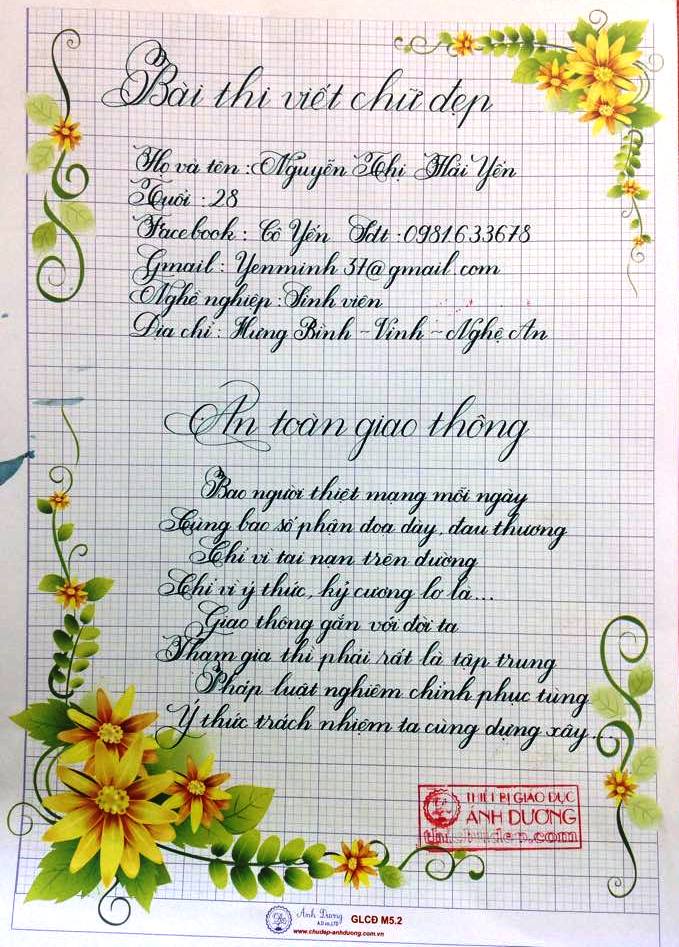 Bài thi viết chữ đẹp
Họ và tên : Nguyễn Thị Hải Yến
Tuổi : 28
Facebook : Cô Yến Sdt : 0981633678
Gmail : Yenminh 37@gmail.com
Nghề nghiệp : Sinh viên
Địa chỉ : Hưng Bình - Vinh - Nghệ An
An toàn giao thông
Bao người thiệt mạng mỗi ngày
Cùng bao số phận đoạ đày, đau thương
Chỉ vì tai nạn trên đường
Chỉ vì ý thức, kỷ cương lơ là...
Giao thông gắn với đời ta
Tham gia thì phải rất là tập trung
Pháp luật nghiêm chỉnh phục tùng
Ý thức trách nhiệm ta cùng dựng xây...
THIẾT BỊ GIÁO DỤC
ÁNH DƯƠNG
Ánh Dương
GLCĐ M5.2
www.chudep-anhduong.com.vn